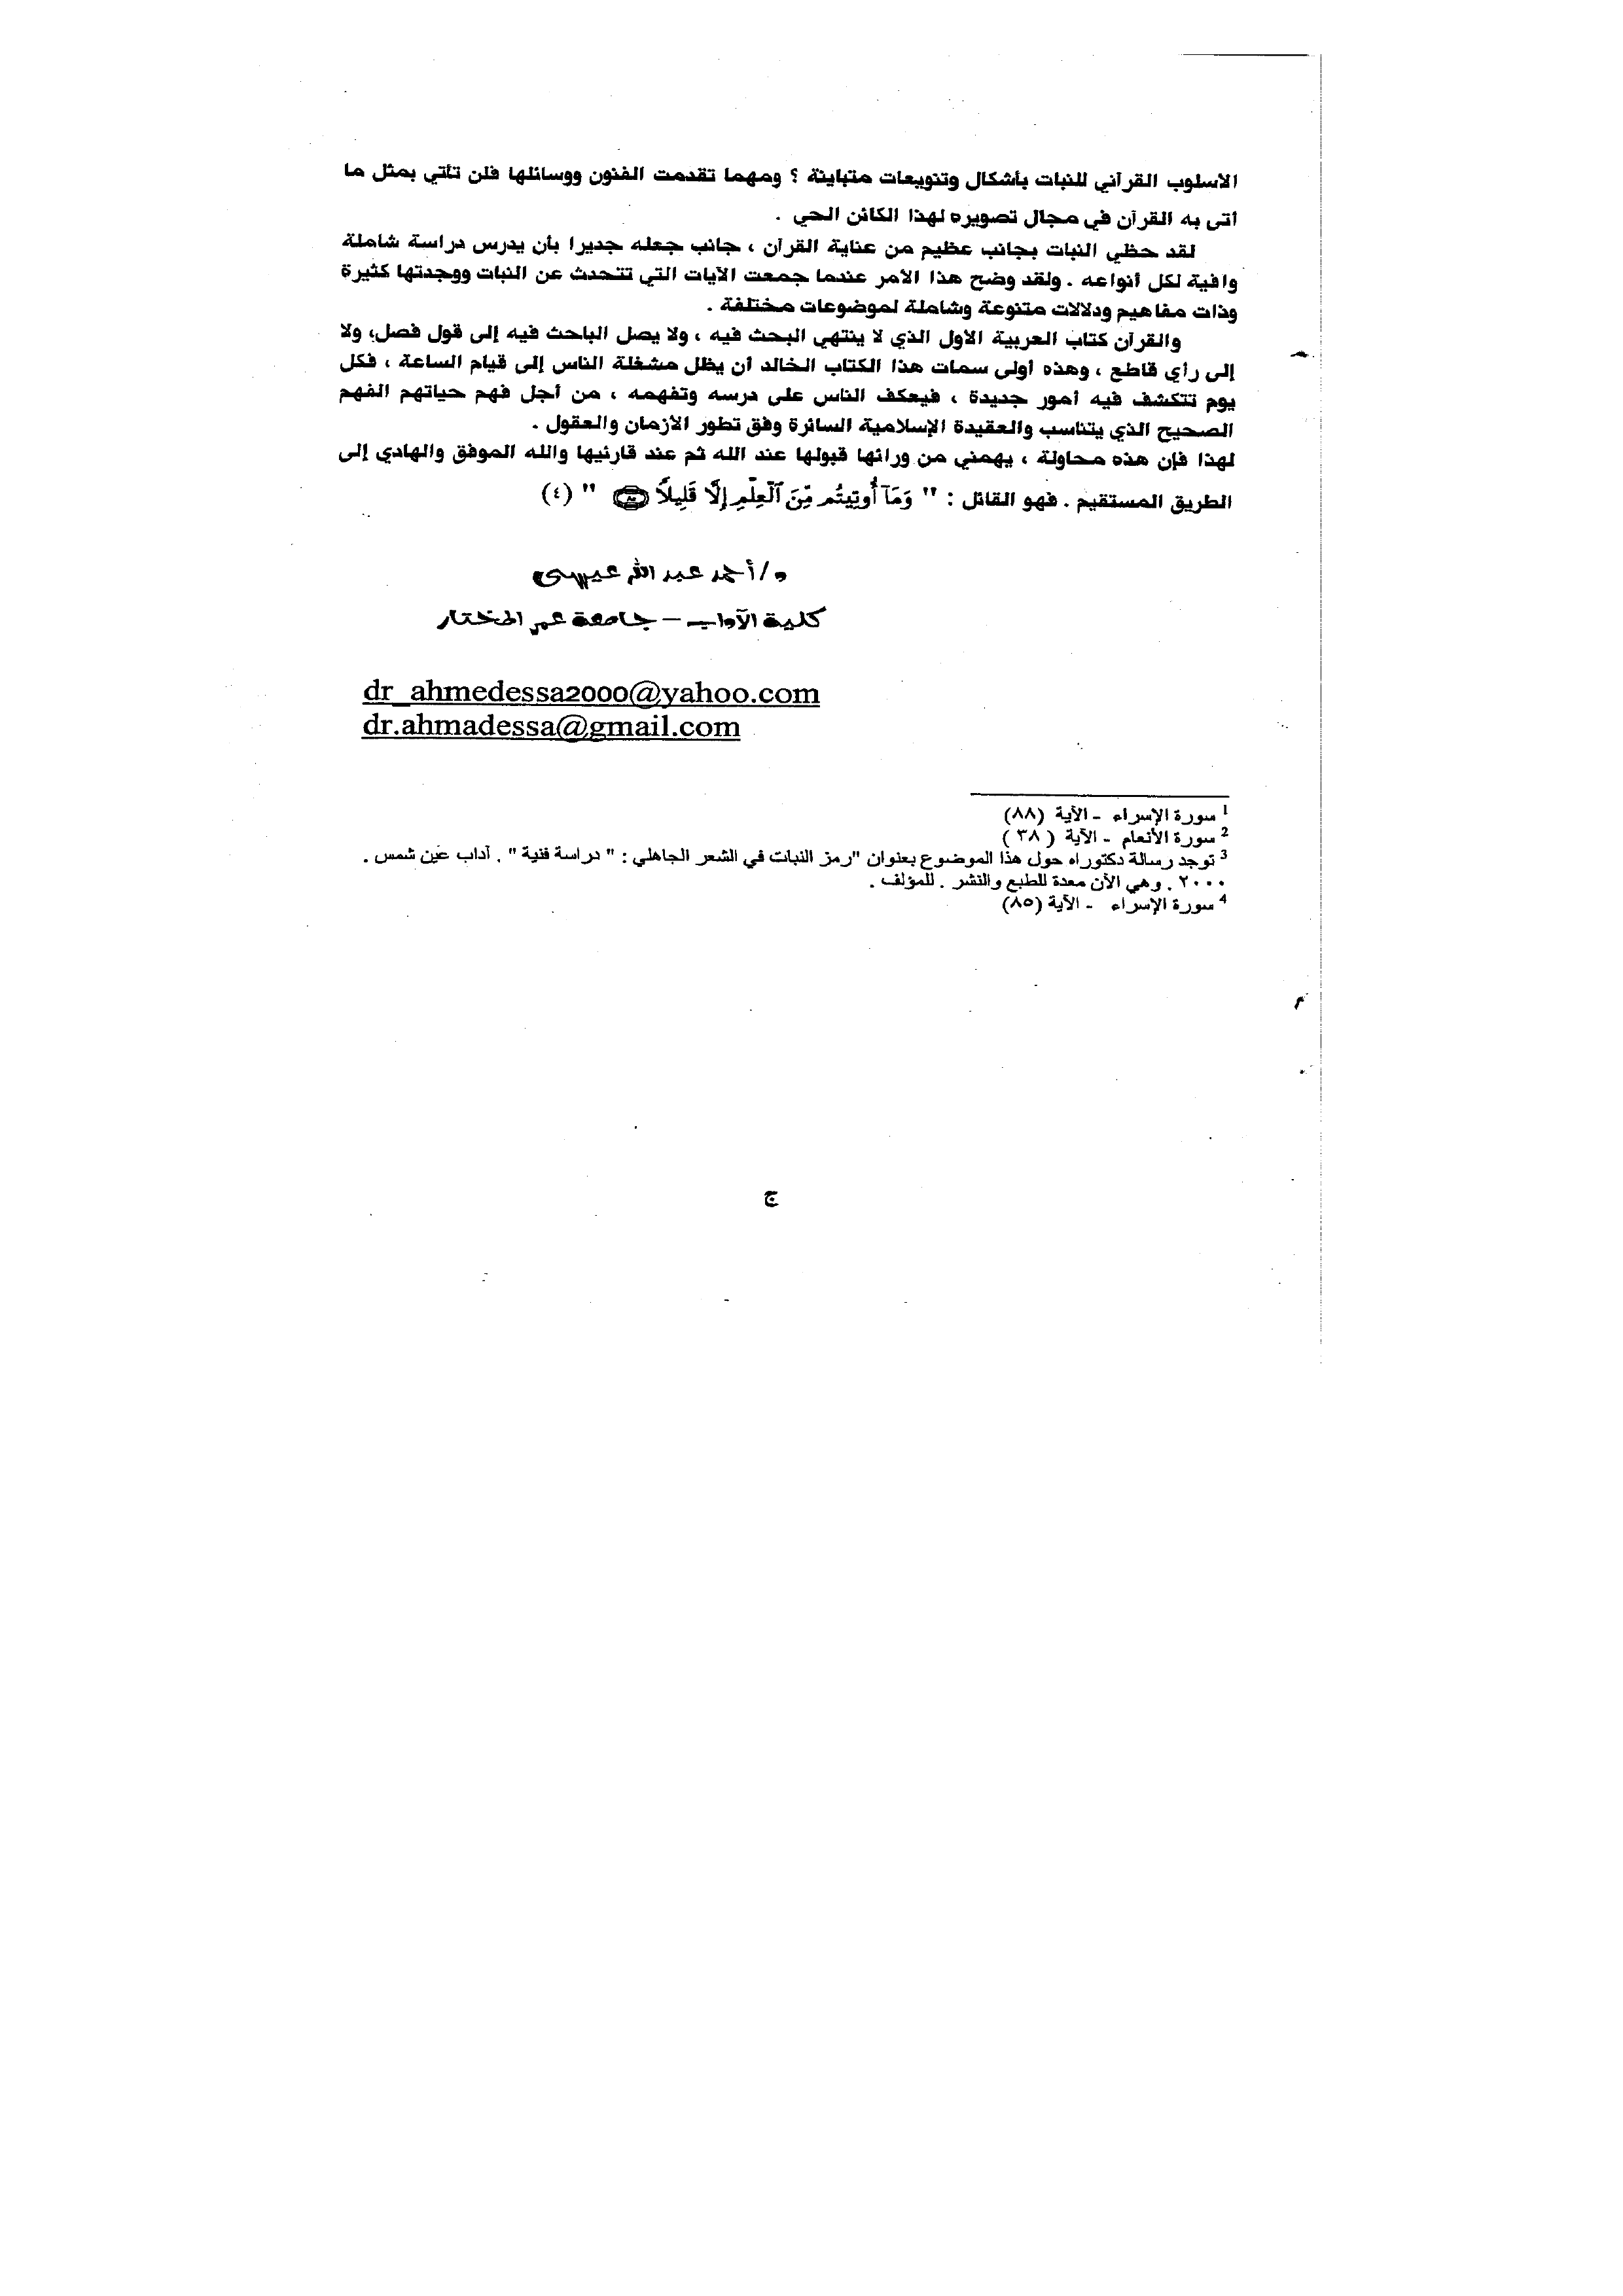 الاسلوب القرآني للنبات بأشكال وتنويعات متباينة ؟ ومهما تقدمت الفنون ووسائلها فلن تأتي بمثل ما
أتى به القرآن في مجال تصويره لهذا الكائن الحي .
لقد حظي النبات بجانب عظيم من عناية القرآن ، جانب جعله جديرا بأن يدرس دراسة شاملة
وافية لكل أنواعه . ولقد وضح هذا الأمر عندما جمعت الآيات التي تتحدث عن النبات ووجدتها كثيرة
وذات مفاهيم ودلالات متنوعة وشاملة لموضوعات مختلفة .
والقرآن كتاب العربية الأول الذي لا ينتهي البحث فيه ، ولا يصل الباحث فيه إلى قول فصل، ولا
إلى رأي قاطع ، وهذه أولى سمات هذا الكتاب الخالد أن يظل مشغلة الناس إلى قيام الساعة ، فكل
يوم تتكشف فيه أمور جديدة ، فيعكف الناس على درسه وتفهمه ، من أجل فهم حياتهم الفهم
الصحيح الذي يتناسب والعقيدة الإسلامية السائرة وفق تطور الأزمان والعقول .
لهذا فإن هذه محاولة ، يهمني من ورائها قبولها عند الله ثم عند قارئيها والله الموفق والهادي إلى
الطريق المستقيم . فهو القائل : " وَمَآ أُوتِيتُم مِّنَ ٱلْعِلْمِ إِلَّا قَلِيلًا ٨٥ " (٤)
د/أحمد عبد الله عيسى
كلية الآداب – جامعة عمر المختار
dr_ahmedessa2000@yahoo.com
dr.ahmadessa@gmail.com
1 سورة الإسراء - الآية (٨٨)
2 سورة الأنعام - الآية ( ٣٨ )
3 توجد رسالة دكتوراه حول هذا الموضوع بعنوان "رمز النبات في الشعر الجاهلي : " دراسة فنية " . آداب عين شمس .
٢٠٠٠ . وهي الآن معدة للطبع والنشر . للمؤلف .
4 سورة الإسراء - الآية (٨٥)
ج